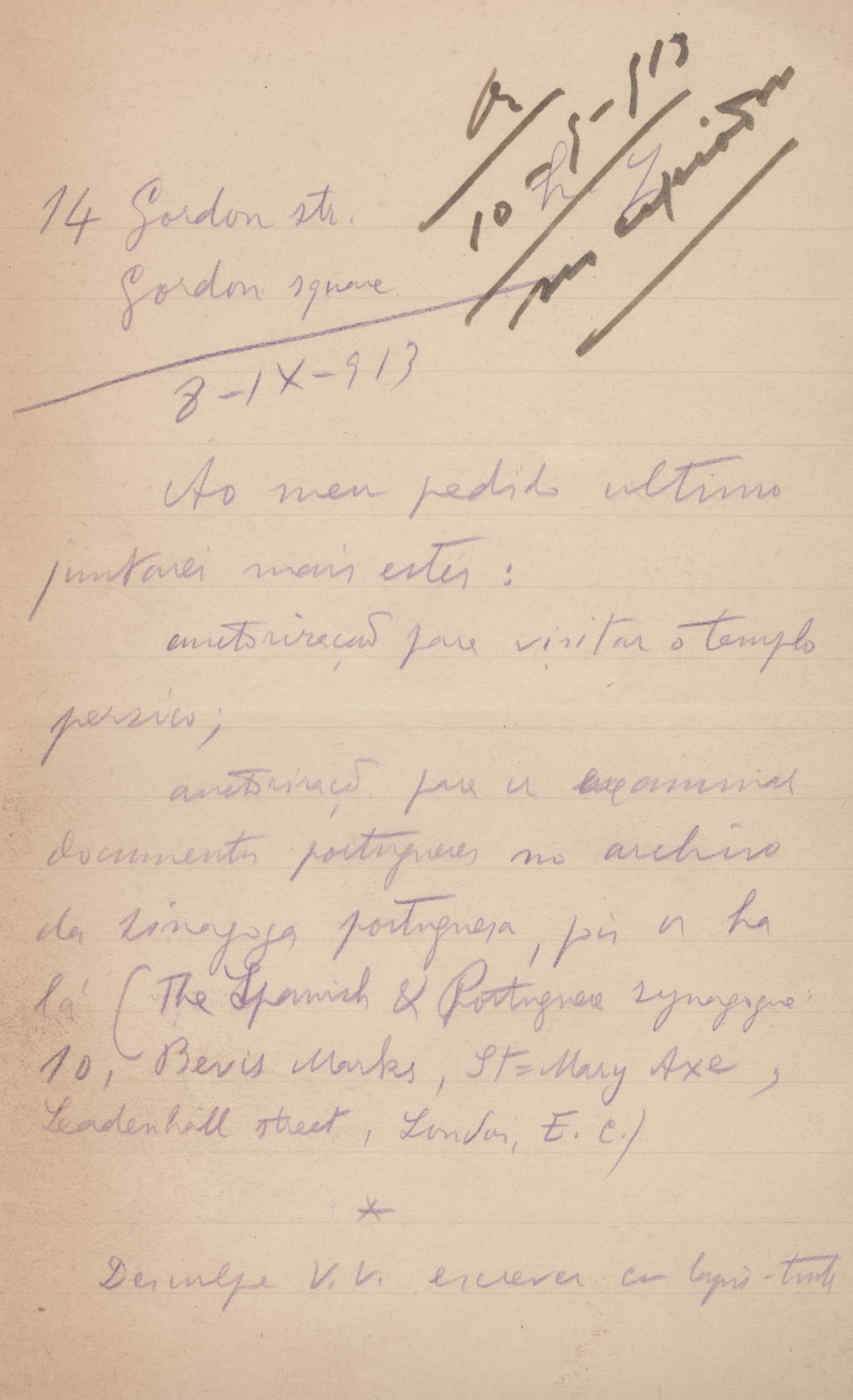 10-9-913
14 Gordon str.
Gordon square
8-IX-913
Ao meu pedido ultimo
juntarei mais estes:
auctorização para visitar o templo
persico;
auctorizaçõ para ir examinar
documentos portugueses no archivo
da sinagoga portuguesa, pois os ha
lá (The Spanish & Portuguese synagogue
10, Bevis Marks, St=Mary Axe,
Leadenhall street, London, E. C.)
*
Desculpe V. V. escrever com lapis-tinta